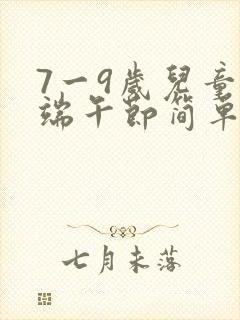 7一9歲兒童
端午節简单
七月未落